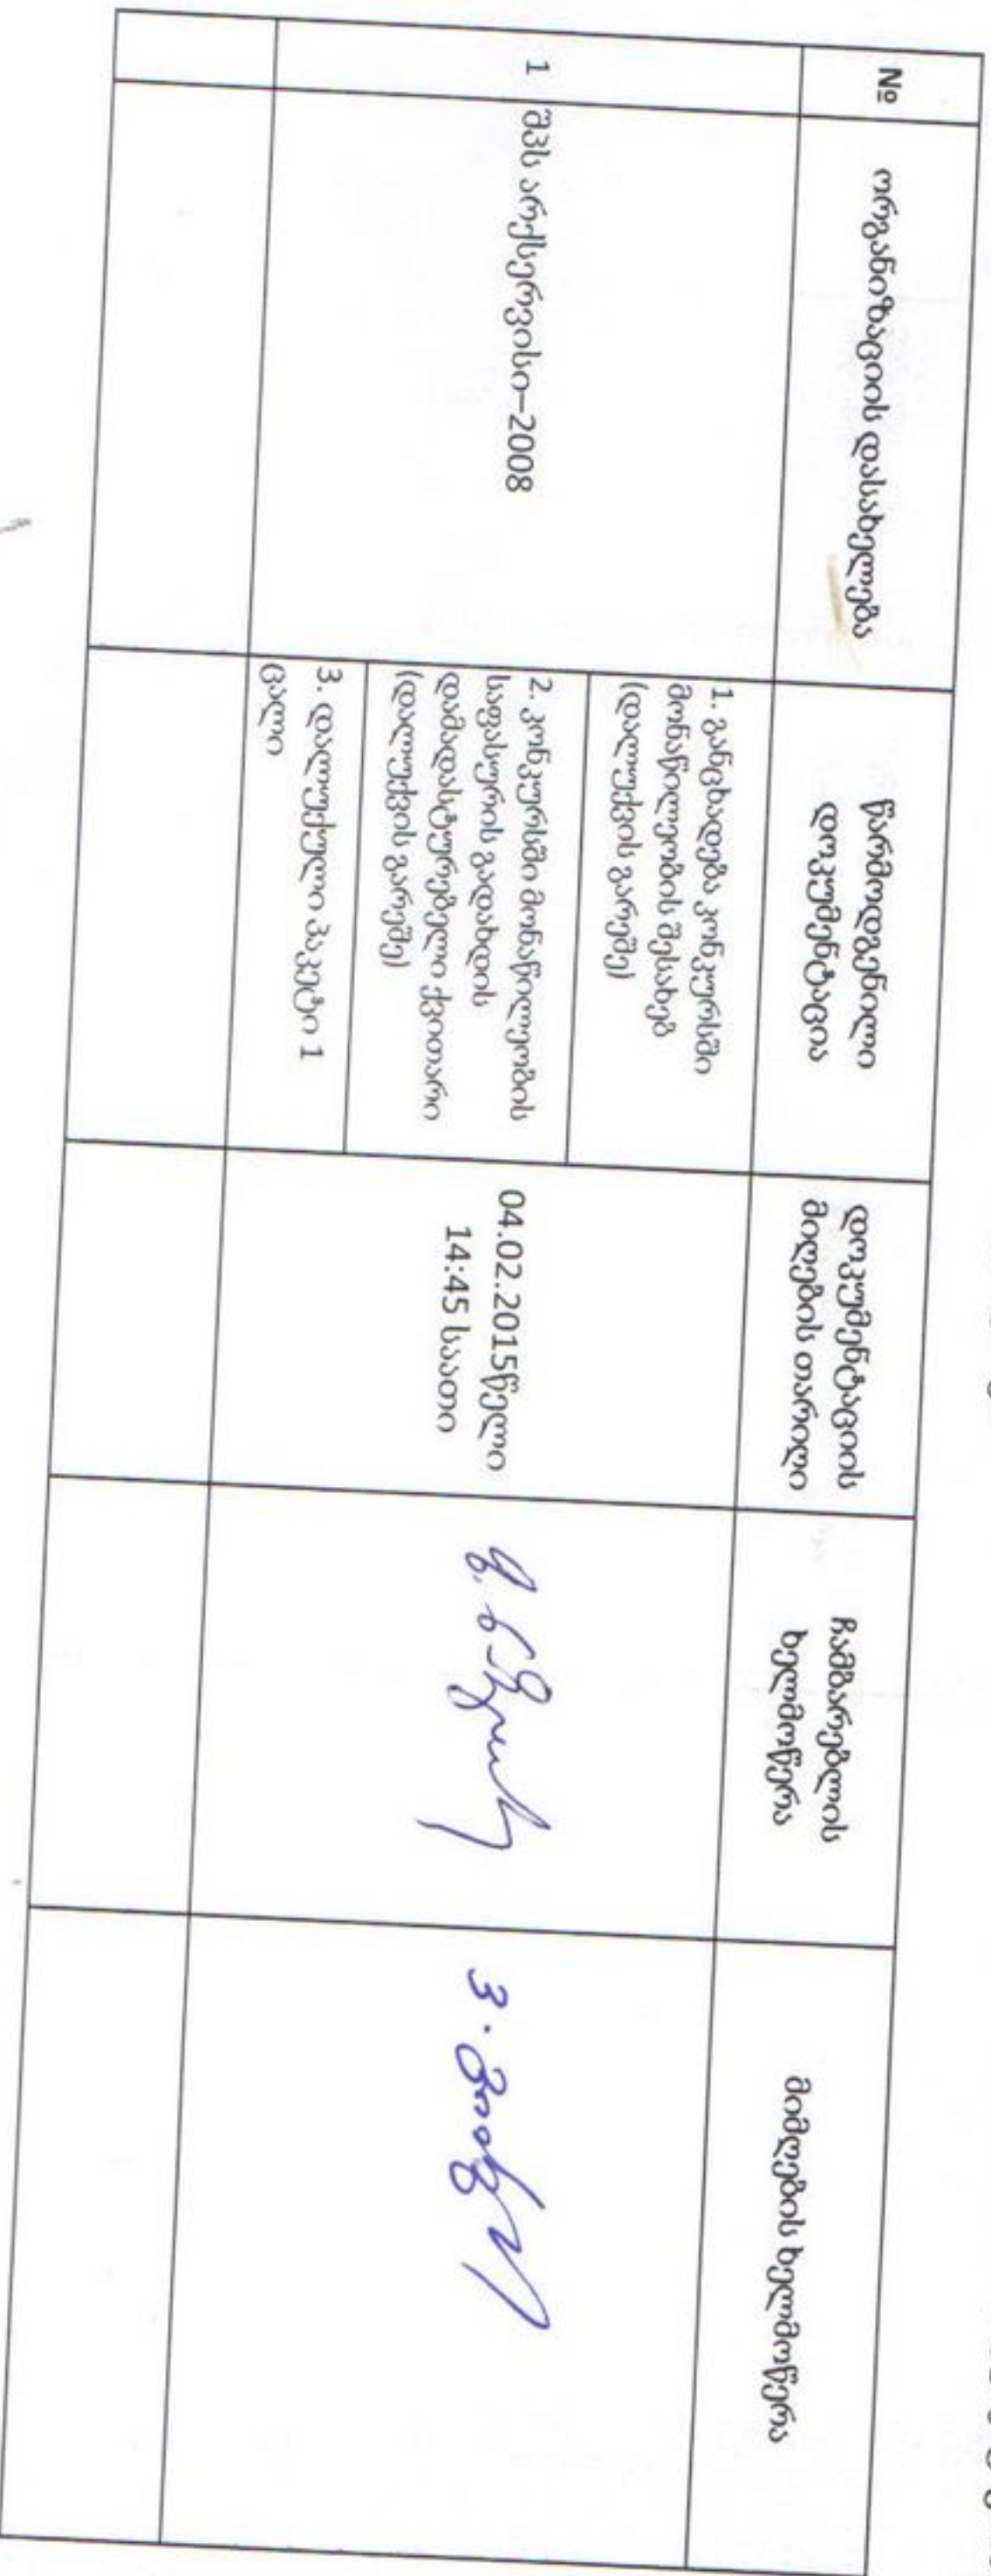 №
ორგანიზაციის დასახელება
წარმოდგენილი
დოკუმენტაცია
დოკუმენტაციის
მიღების თარიღი
ჩამბარებლის
ხელმოწერა
მიმღების ხელმოწერა
1
შპს არქსერვისი-2008
1. განცხადება კონკურსში
მონაწილეობის შესახებ
(დალუქვის გარეშე)
2. კონკურსში მონაწილეობის
საფასურის გადახდის
დამადასტურებელი ქვითარი
(დალუქვის გარეშე)
3. დალუქული პაკეტი 1
ცალი
04.02.2015წელი
14:45 საათი